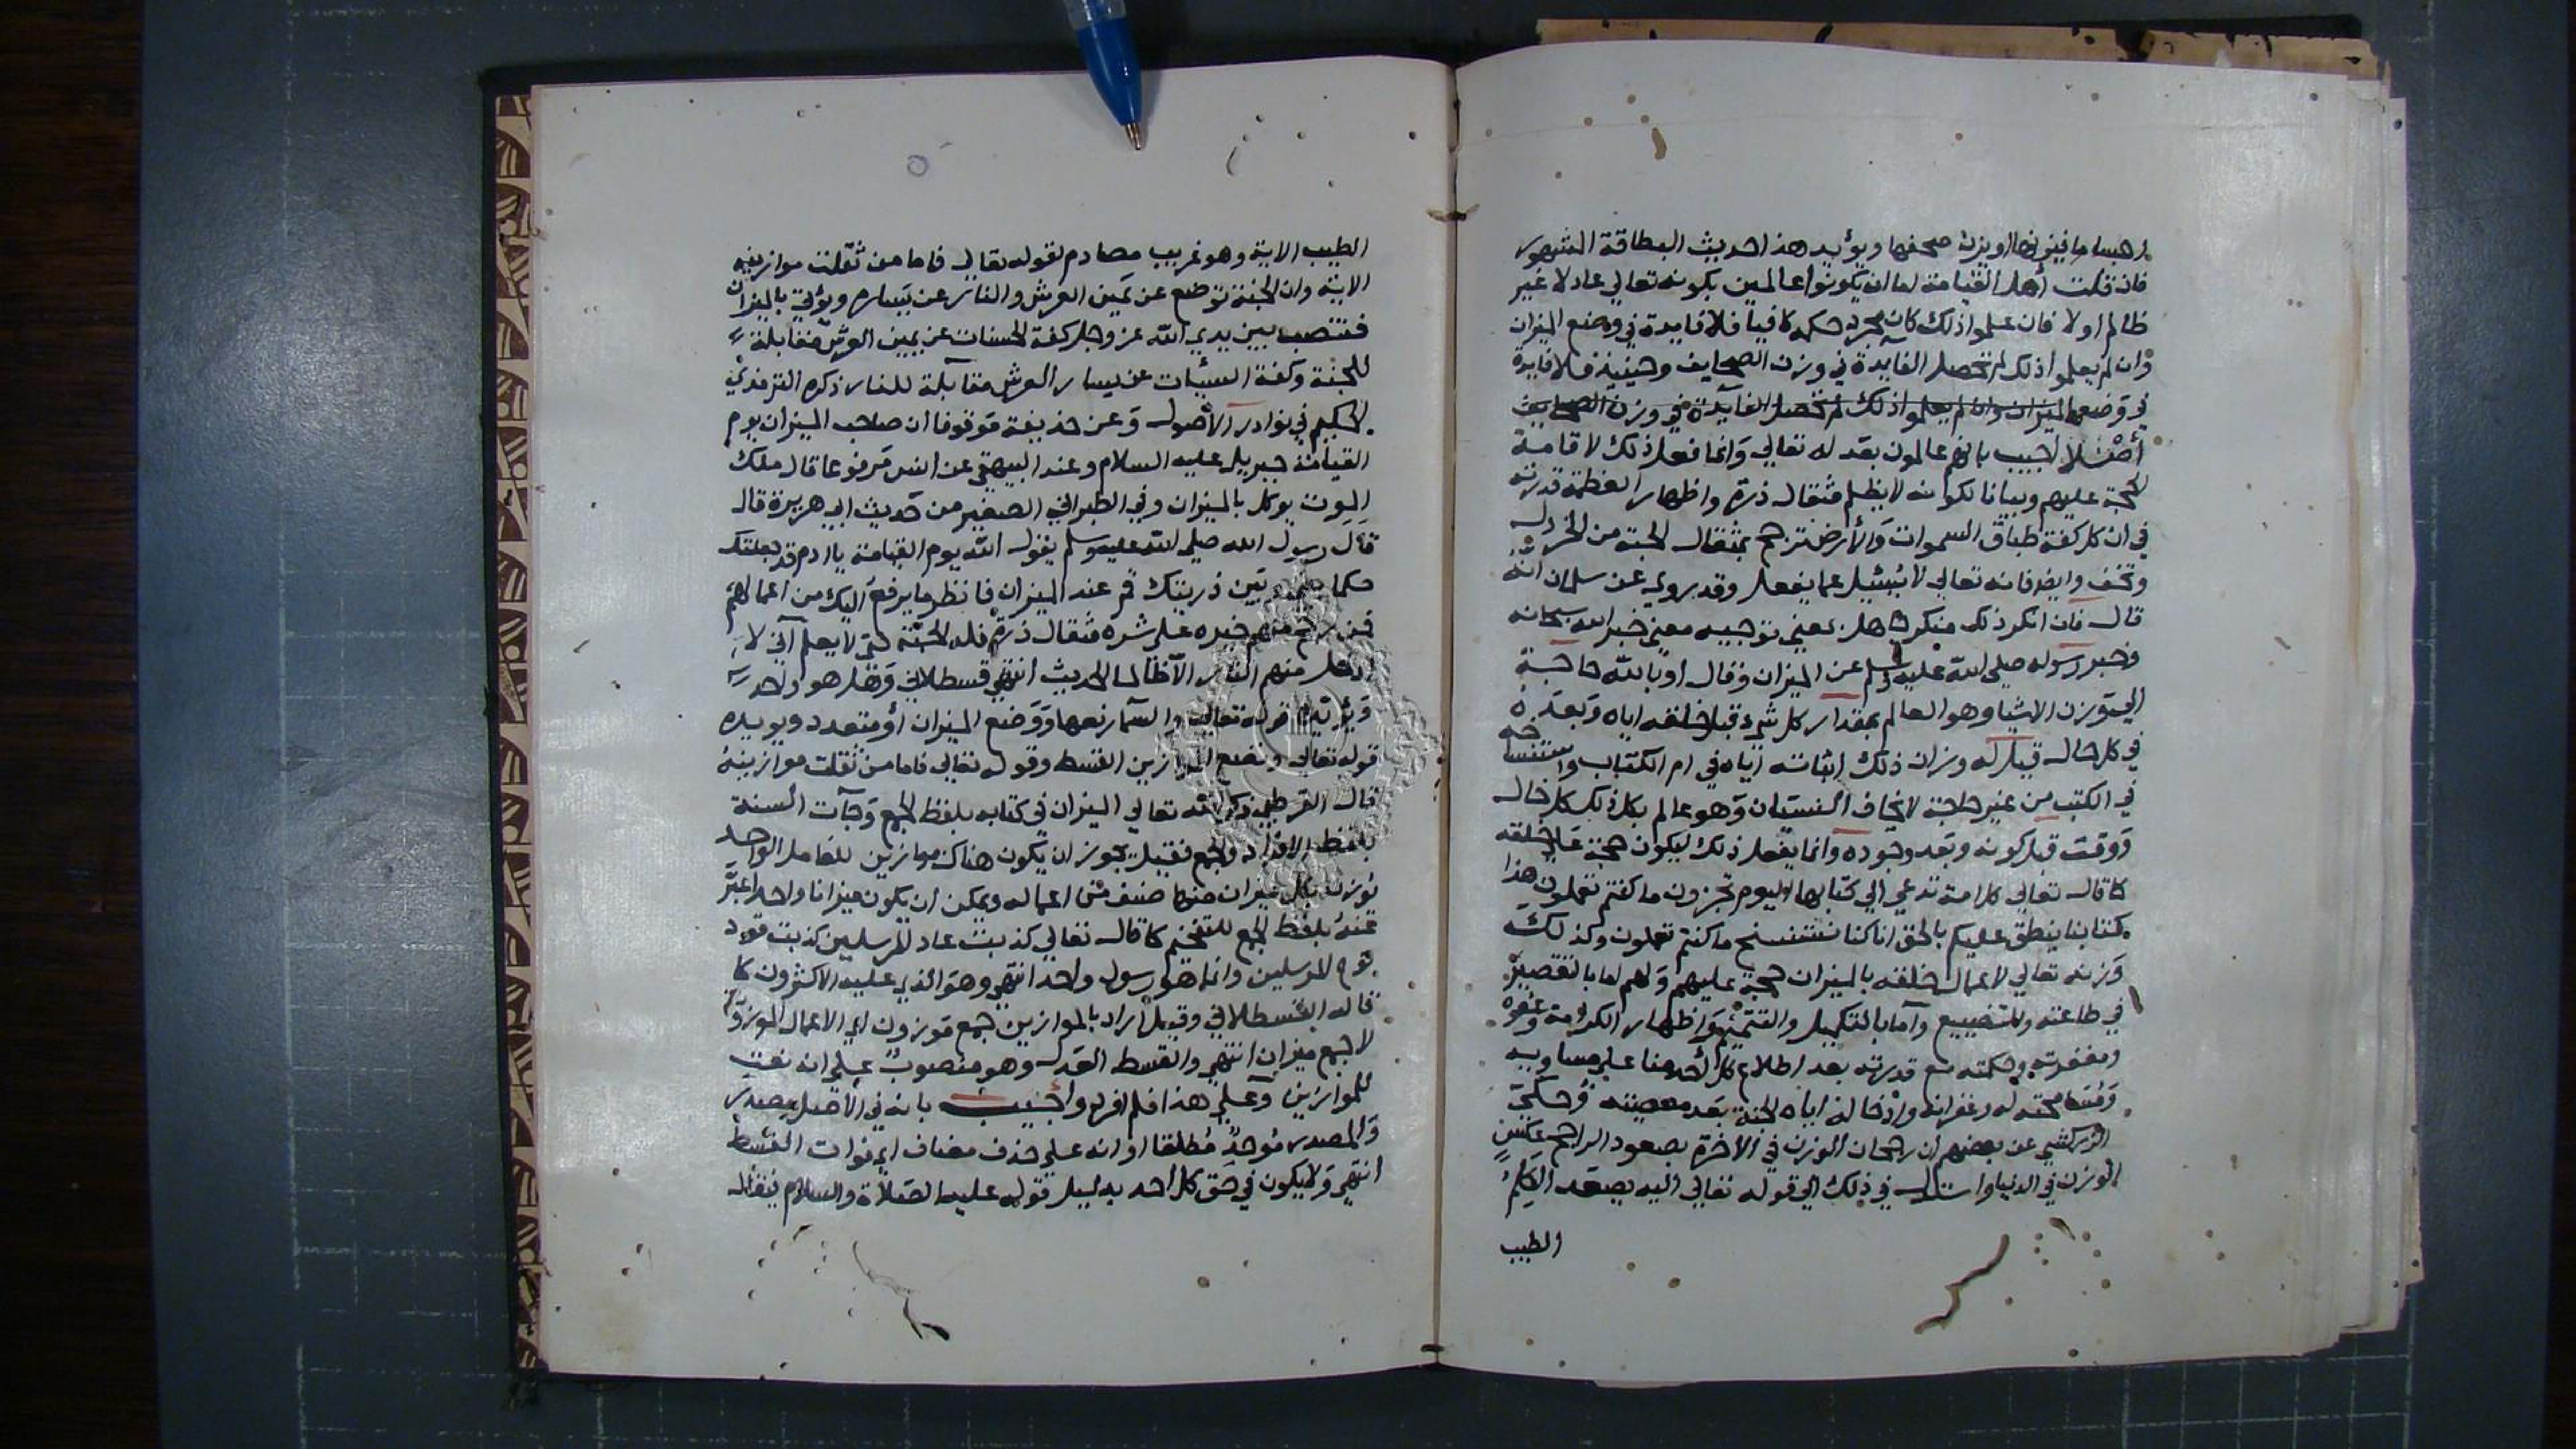 اجساما فيزنها او يزن صحفها ويؤيد هذا حديث البطاقة المشهور
فان قلت أهل القيامة اما ان يكونوا عالمين بكونه تعالي عادلا غير
ظالم اولا فان علموا ذلك كان مجرد حكمه كافيا فلا فايدة في وضع الميزان
وان لم يعلموا ذلك لم تحصل الفايدة في وزن الصحايف وحينيذ فلا فايدة
في وضع الميزان وان لم يعلموا ذلك لم تحصل الفآيدة في وزن الصحايف
أصْلا اجيب بانهم عالمون بعدله تعالي وانما فعل ذلك لاقامة
الحجة عليهم وبيانا لكونه لا يظلم مثقال ذرة واظهار العظمة قدرته
في ان كل كفة طباق السموات والأرض ترجح بمثقال الحبة من الخردل
وتخف وايضا فانه تعالي لا يُسْئيل عما يفعل وقد روي عن سلمان انه
قال فان انكر ذلك منكر جاهل بمعني توجيه معني خبر الله سبحانه
وخبر رسوله صلي الله عليه وسلم عن الميزان وقال اوبالله حاجة
الي وزن الاشيا وهو العالم بمقدار كل شيء قبل خلقه اياه وبعده
في كل حال قيل له وزان ذلك اثباته اياه في ام الكتاب واستنساخه
في الكتب من غير حاجة لا يخاف النسيان وهو عالم بكل ذلك كل حال
ووقت قبل كونه وبعد وجوده وانما يفعل ذلك ليكون حجة علي خلقه
كما قال تعالي كل امة تدعي الي كتابها اليوم تجزون ما كنتم تعملون هذا
كتابنا ينطق عليكم بالحق انا كنا نستنسخ ما كنتم تعملون وكذلك
وزنه تعالي لاعمال خلقه بالميزان حجة عليهم ولهم اما بالتقصير
في طاعته والتضييع وآما بالتكميل والتتميم واظهار الكرمه وعفوه
ومغفرته وحكمته مع قدرته بعد اطلاع كل أحد منا علي مساويه
ومسامحته له وغفرانه وادخاله اياه الجنة بعد معصيته وحكي
الزركشي عن بعضهم ان رجحان الوزن في الاخرة بصعود الراجح عكس
الوزن في الدنيا واستدل في ذلك الي قوله تعالي اليه يصعد الكلم
الطيب
الطيب الاية وهو غريب مصادم لقوله تعالي فاما من ثقلت موازينه
الاية وان الجنة توضع عن يمين العرش والنار عن يساره ويؤتي بالميزان
فتنصب بين يدي الله عز وجل كفة الحسنات عن يمين العرش مقابلة
للجنة وكفة السيئات عن يسار العرش مقآبلة للنار ذكره الترمذي
الحكيم في نوادر الأصول وعن حذيفة موقوفا ان صاحب الميزان يوم
القيامة جبريل عليه السلام وعند البيهقي عن انس مرفوعا قال ملك
الموت يوكل بالميزان وفي الطبراني الصغير من حديث ابي هريرة قال
قال رسول الله صلي الله عليه وسلم يقول الله يوم القيامة يا ادم قد جعلتك
حكما بيني وبين ذريتك قم عند الميزان فانظر ما يرفع اليك من اعمالهم
فمن رجح منهم خيره علي شره مثقال ذرة فله الجنة حتي لا يعلم آني لا
ادخل منهم النار الا ظالما الحديث انتهي قسطلاني وهل هو واحد
ويؤيده قوله تعالي والسمآ رفعها ووضع الميزان أو متعدد ويويده
قوله تعالي ونضع الموازين القسط وقوله تعالي فاما من ثقلت موازينه
قال القرطبي ذكر الله تعالي الميزان في كتابه بلفظ الجمع وجآت السنة
بلفظ الافراد والجمع فقيل يجوز ان يكون هناك موازين للعامل الواحد
يوزن بكل ميزان منها صنف من اعماله ويمكن ان يكون ميزانا واحدا عبّر
عنه بلفظ الجمع للتفخيم كما قال تعالي كذبت عاد المرسلين كذبت قوم
نوح المرسلين وانما هو رسول واحد انتهي وهو الذي عليه الاكثرون كما
قاله القسطلاني وقيل أراد بالموازين جمع موزون اي الاعمال الموزونة
لا جمع ميزان انتهي والقسط العدل وهو منصوبٌ علي انه نعت
للموازين وعلي هذا فلم افرد واجيب بانه في الأصل مصدر
والمصدر مُوحدٌ مُطلقا او انه علي حذف مضاف اي ذوات القسط
انتهي ولا يكون في حق كل أحد بدليل قوله عليه الصلاة والسلام فيقال